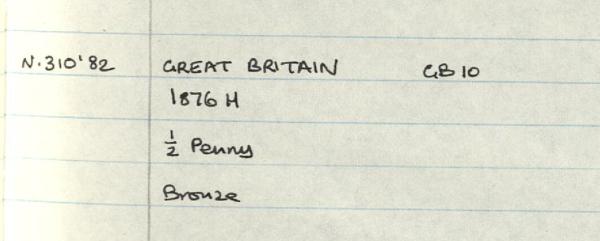 N.310'82 GREAT BRITAIN GB 10
1876 H
½ Penny
Bronze